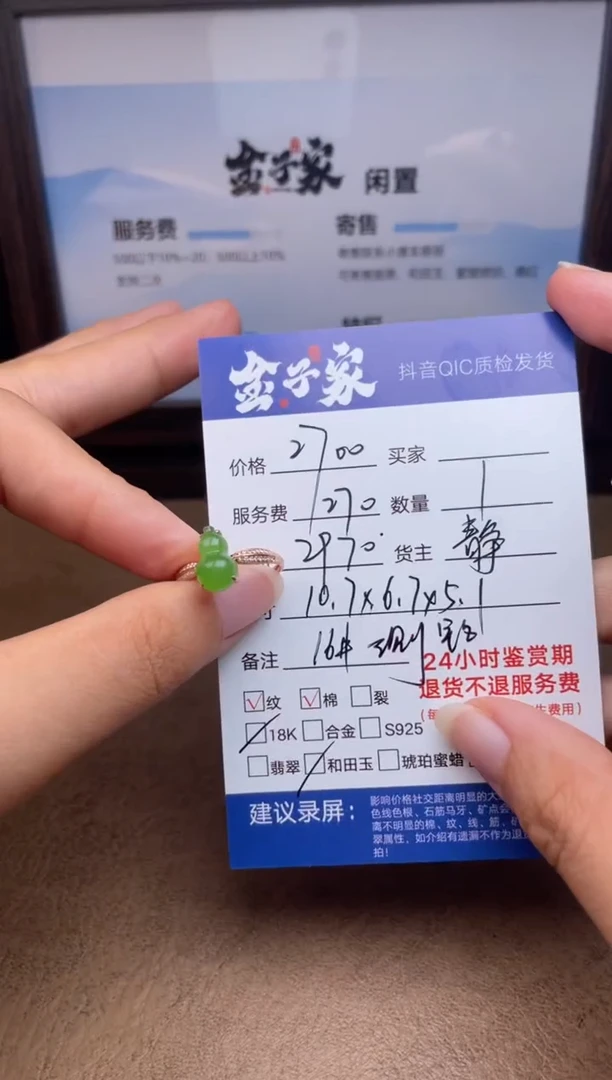 金子家 闲置
服务费
寄售
金子家 抖音QIC质检发货
价格 2700 买家
服务费 270 数量 1
2970 货主 静
寸 10.7x6.7x5.1
备注 16#
24小时鉴赏期
退货不退服务费
纹 棉 裂
18K 合金 S925
翡翠 和田玉 琥珀蜜蜡
建议录屏：
影响价格社交距离明显的大
色线色根、石筋马牙、矿点会
离不明显的棉、纹、线、筋、
翠属性，如介绍有遗漏不作为退
拍！